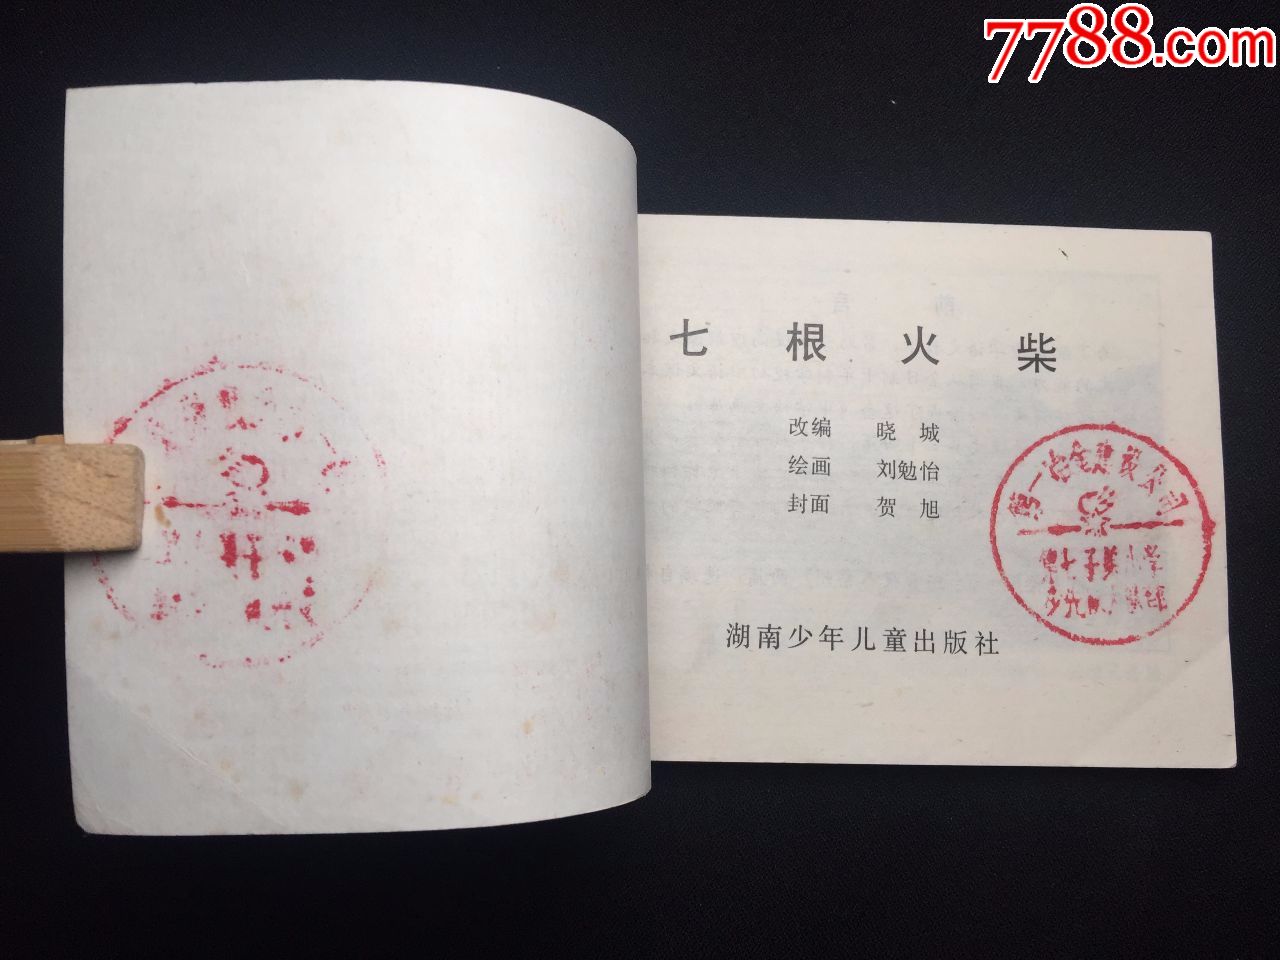 7788.com
七根火柴
改编 晓城
绘画 刘勉怡
封面 贺旭
湖南少年儿童出版社